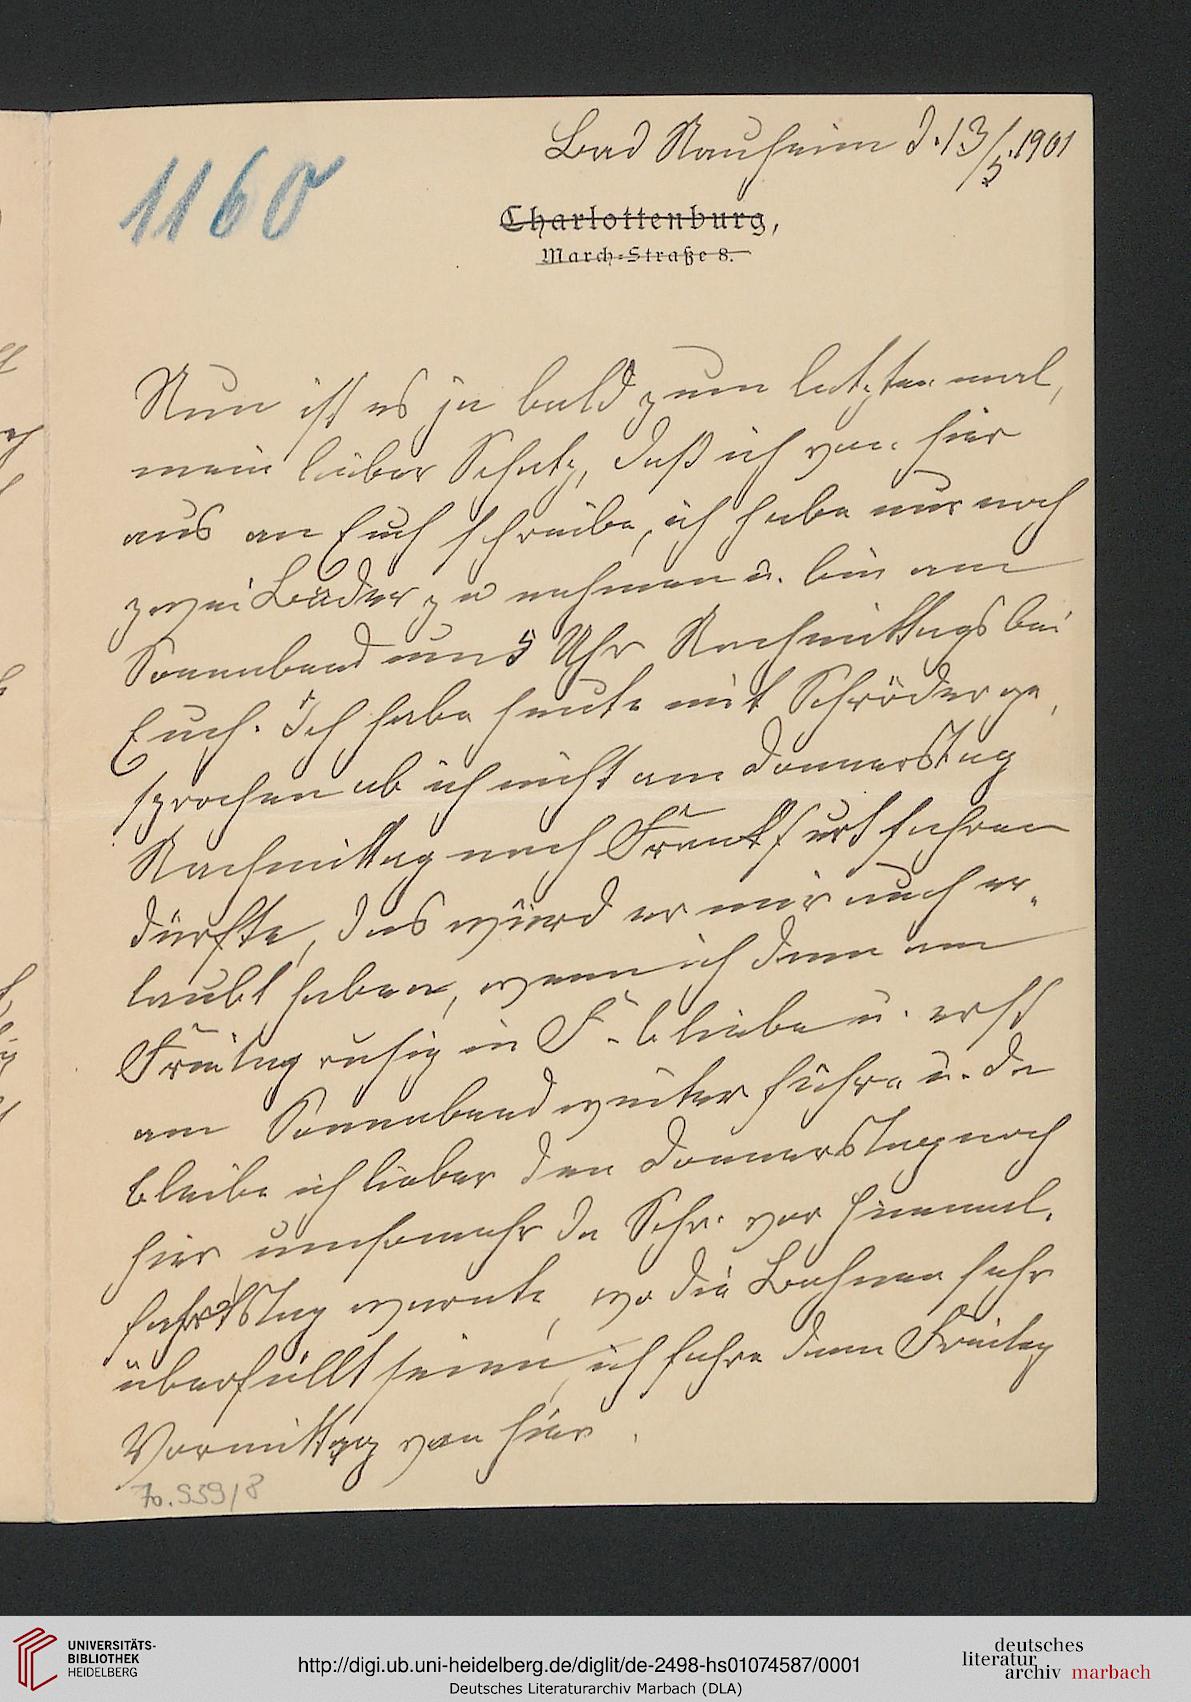 Bad Nauheim d. 13/5. 1901
1160
Charlottenburg,
March-Straße 8.
Nun ist es ja bald zum letzten mal,
mein lieber Schatz, daß ich von hier
aus an Euch schreibe, ich habe nur noch
zwei Bäder zu nehmen u. bin am
Sonnabend um 5 Uhr Nachmittags bei
Euch. Ich habe heute mit Schröder ge-
sprochen ob ich nicht am Donnerstag
Nachmittag nach Frankfurt fahren
dürfte, das würd er mir auch er-
laubt haben, wenn ich dann am
Freitag ruhig in F. bliebe u. erst
am Sonnabend weiter führe u. da
bleibe ich lieber den Donnerstag noch
hier umsomehr da Schr. vor Himmel-
fahrtstag warnte, wo die Bahnen sehr
überfüllt seien, ich fahre dann Freitag
Vormittag von hier.
70.939/8
UNIVERSITÄTS-
BIBLIOTHEK
HEIDELBERG
http://digi.ub.uni-heidelberg.de/diglit/de-2498-hs01074587/0001
Deutsches Literaturarchiv Marbach (DLA)
deutsches
literatur
archiv marbach